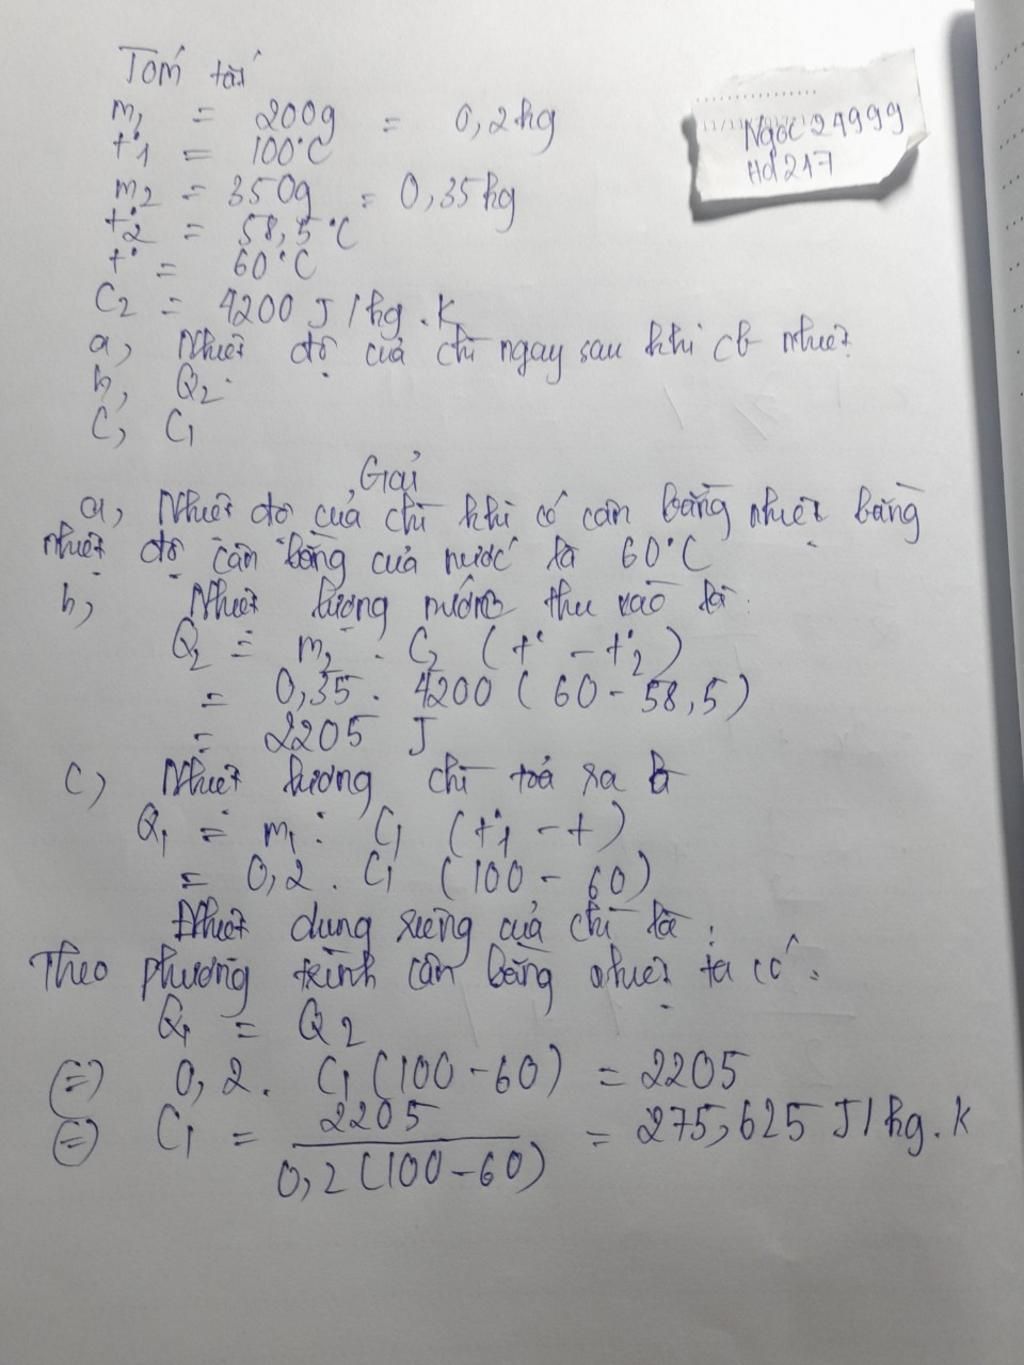 Tóm tắt
m₁ = 200g = 0,2kg
t°₁ = 100°C
m₂ = 350g = 0,35kg
t°₂ = 58,5°C
t° = 60°C
C₂ = 4200 J/kg.K
a, Nhiệt độ của chì ngay sau khi cb nhiệt
b, Q₂
C, C₁
Ngoc24999
Hd217
Giải
a, Nhiệt độ của chì khi có cân bằng nhiệt bằng
nhiệt độ cân bằng của nước là 60°C
b, Nhiệt lượng nước thu vào là:
Q₂ = m₂ . C₂ (t° - t°₂)
= 0,35 . 4200 (60 - 58,5)
= 2205 J
c) Nhiệt lượng chì toả ra là
Q₁ = m₁ . C₁ (t°₁ - t)
= 0,2 . C₁ (100 - 60)
Nhiệt dung riêng của chì là:
Theo phương trình cân bằng nhiệt ta có:
Q₁ = Q₂
(=) 0,2 . C₁ (100 - 60) = 2205
(=) C₁ = 2205 / 0,2 (100 - 60) = 275,625 J/kg.K